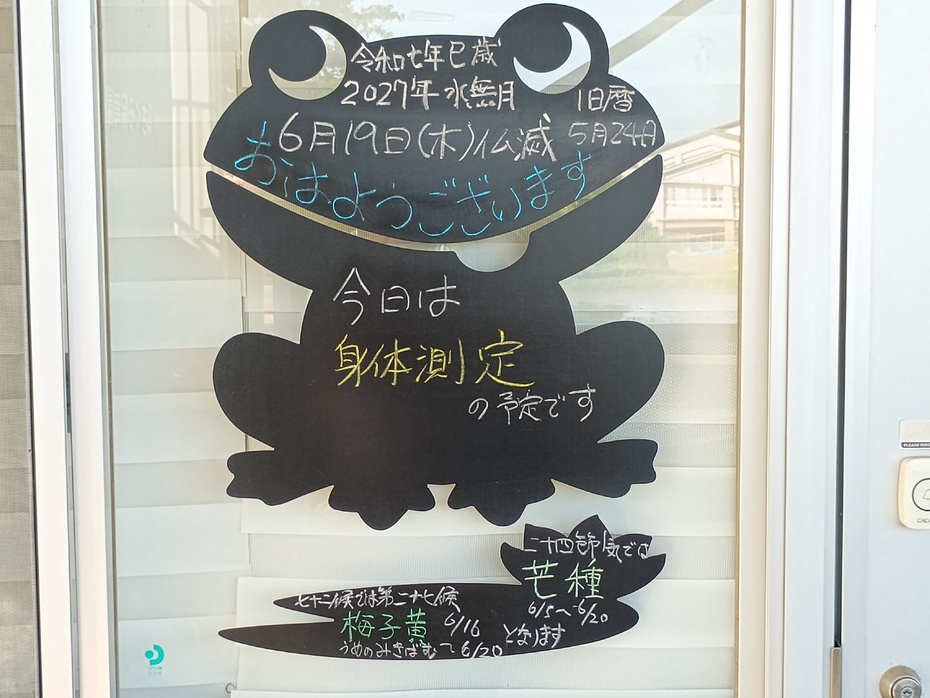 令和七年巳歳
2027年 水無月
旧暦
6月19日(木)仏滅
5月24日
おはようございます
今日は
身体測定
の予定です
二十四節気では
芒種
6/5〜6/20
七十二候では第二十七候
梅子黄 6/16
うめのみきばむ 〜6/20
となります